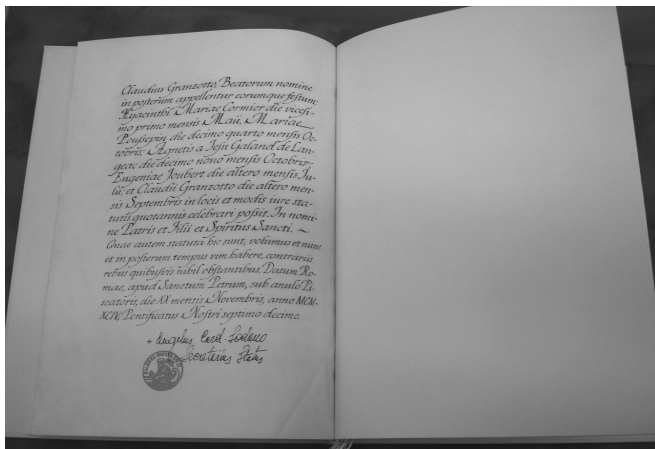 Claudius Granzotto, Beatorum nomine
in posterum appellentur eorumque festum:
Hyacinthi Mariae Cormier die vicesi-
mo primo mensis Maii, Mariae
Poussepin die decimo quarto mensis Oc-
tobris, Agnetis a Jesu Galand de Lan-
geac die decimo nono mensis Octobris,
Eugeniae Joubert die altero mensis Iu-
lii, et Claudii Granzotto die altero men-
sis Septembris in locis et modis iure sta-
tutis quotannis celebrari possit. In nomi-
ne Patris et Filii et Spiritus Sancti. ~
Quae autem statuta hic sunt, volumus et nunc
et in posterum tempus vim habere, contrariis
rebus quibusvis nihil obstantibus. Datum Ro-
mae, apud Sanctum Petrum, sub anulo Pi-
scatoris, die XX mensis Novembris, anno MCM-
XCIV, Pontificatus Nostri septimo decimo.
+ Angelus Card. Sodano
Secretarius Status